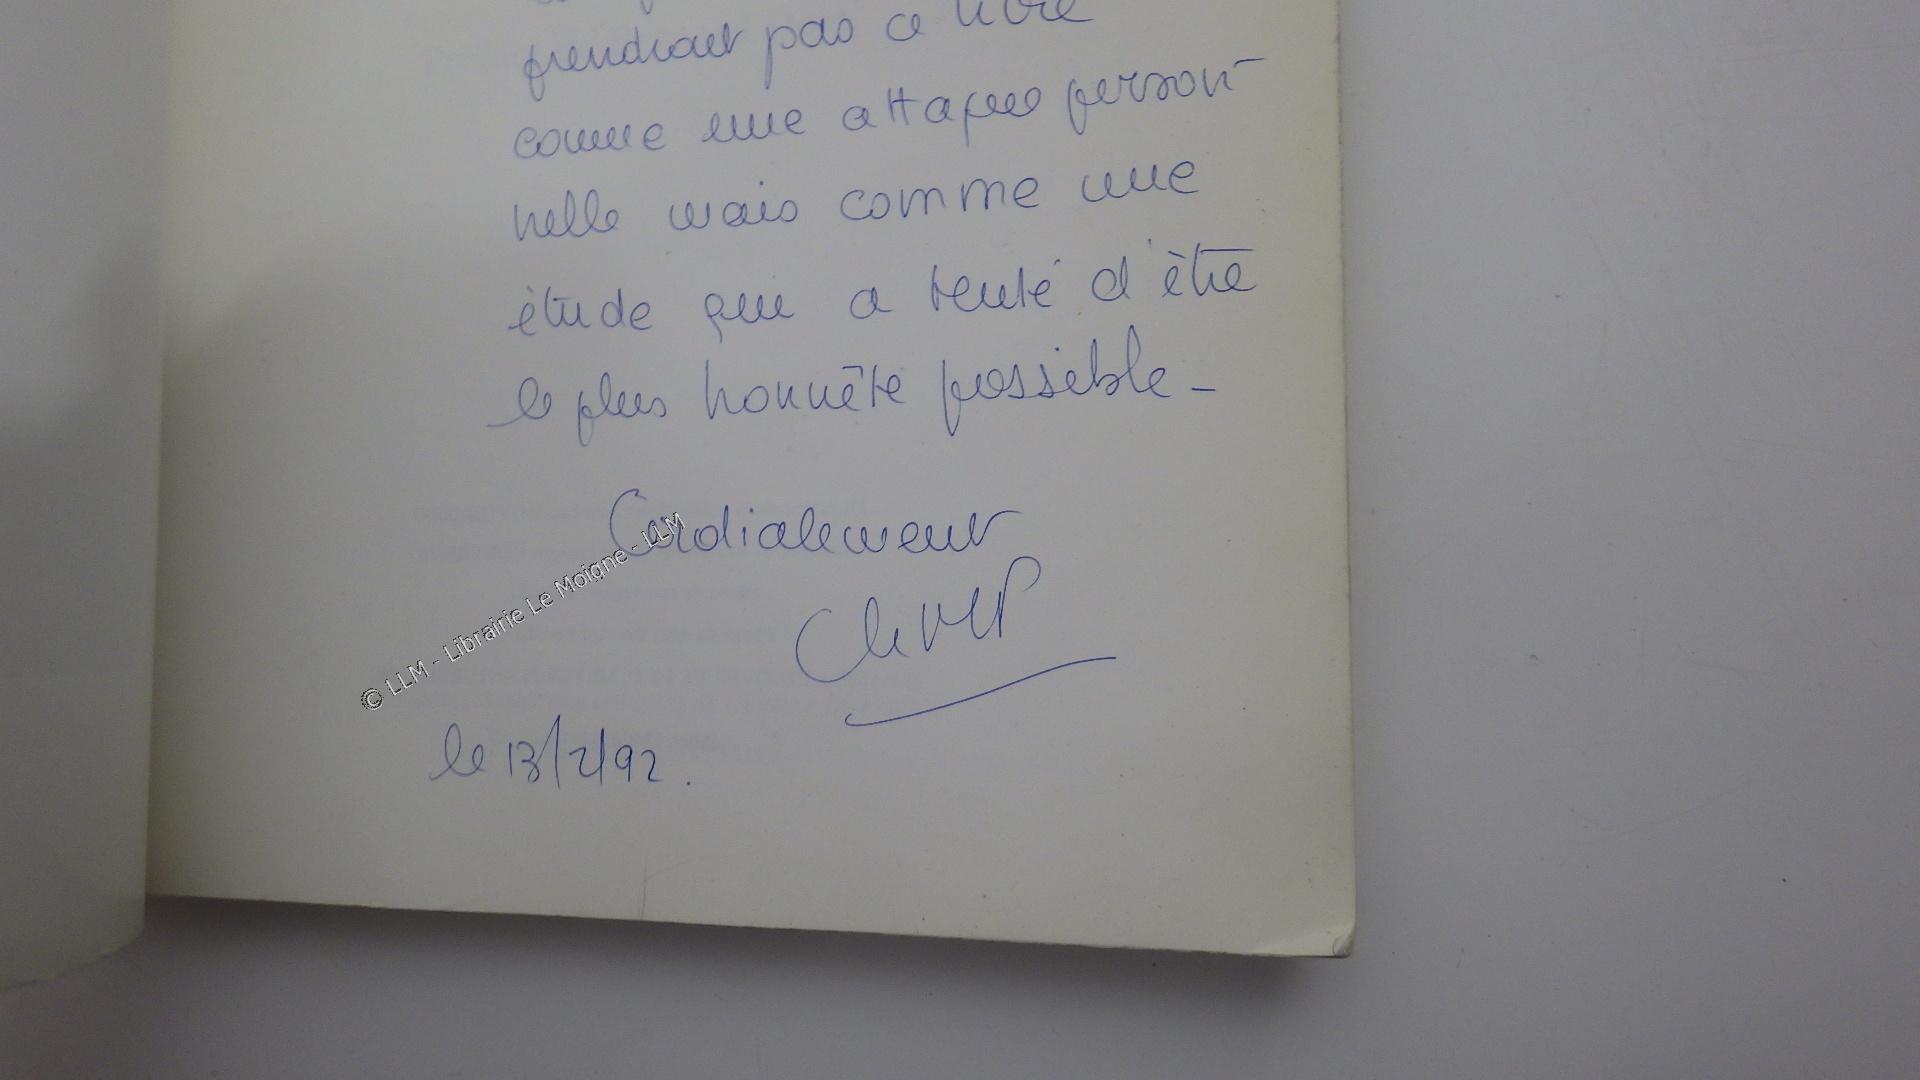 prendrait pas ce livre
comme une attaque person-
nelle mais comme une
étude qui a tenté d'être
le plus honnête possible -
Cordialement
© LLM - Librairie Le Moigne - LLM
le 13/2/92.